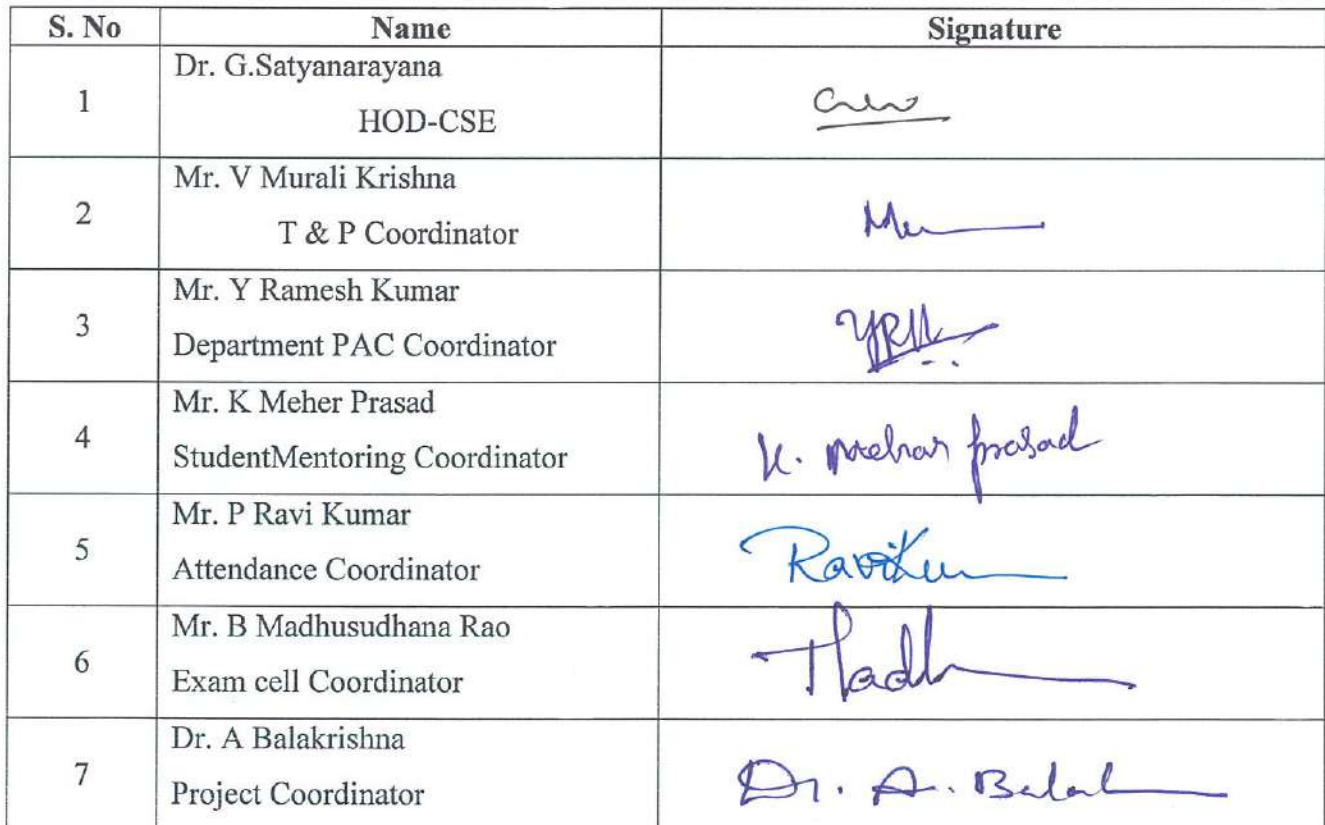 S. No Name Signature
1 Dr. G.Satyanarayana
HOD-CSE
2 Mr. V Murali Krishna
T & P Coordinator
3 Mr. Y Ramesh Kumar YRK
Department PAC Coordinator
4 Mr. K Meher Prasad K. Mehar Prasad
StudentMentoring Coordinator
5 Mr. P Ravi Kumar
Attendance Coordinator
6 Mr. B Madhusudhana Rao
Exam cell Coordinator
7 Dr. A Balakrishna Dr. A.
Project Coordinator